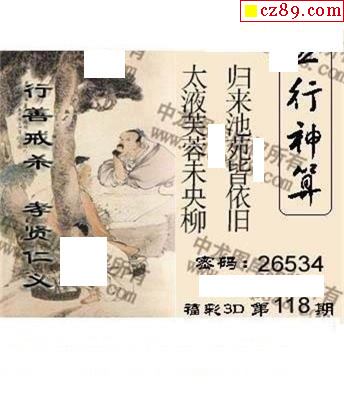 cz89.com
五行神算
归来池苑皆依旧
太液芙蓉未央柳
行善戒杀 孝贤仁义
密码：26534
福彩3D 第118期